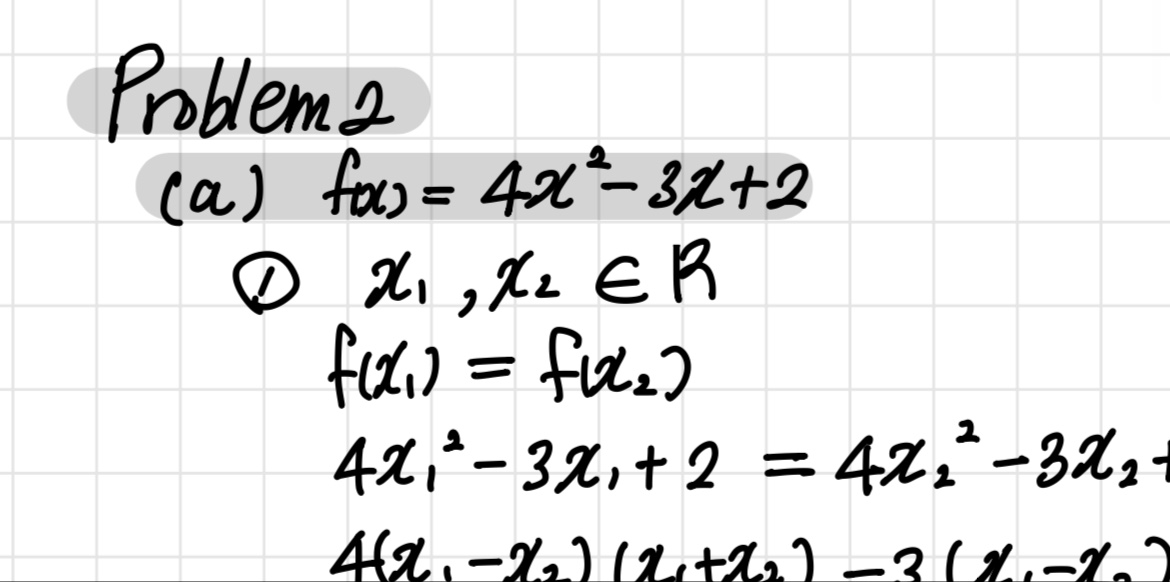 Problem 2
(a) f(x) = 4x² - 3x + 2
① x₁, x₂ ∈ R
f(x₁) = f(x₂)
4x₁² - 3x₁ + 2 = 4x₂² - 3x₂ +
4(x₁ - x₂)(x₁ + x₂) - 3(x₁ - x₂)